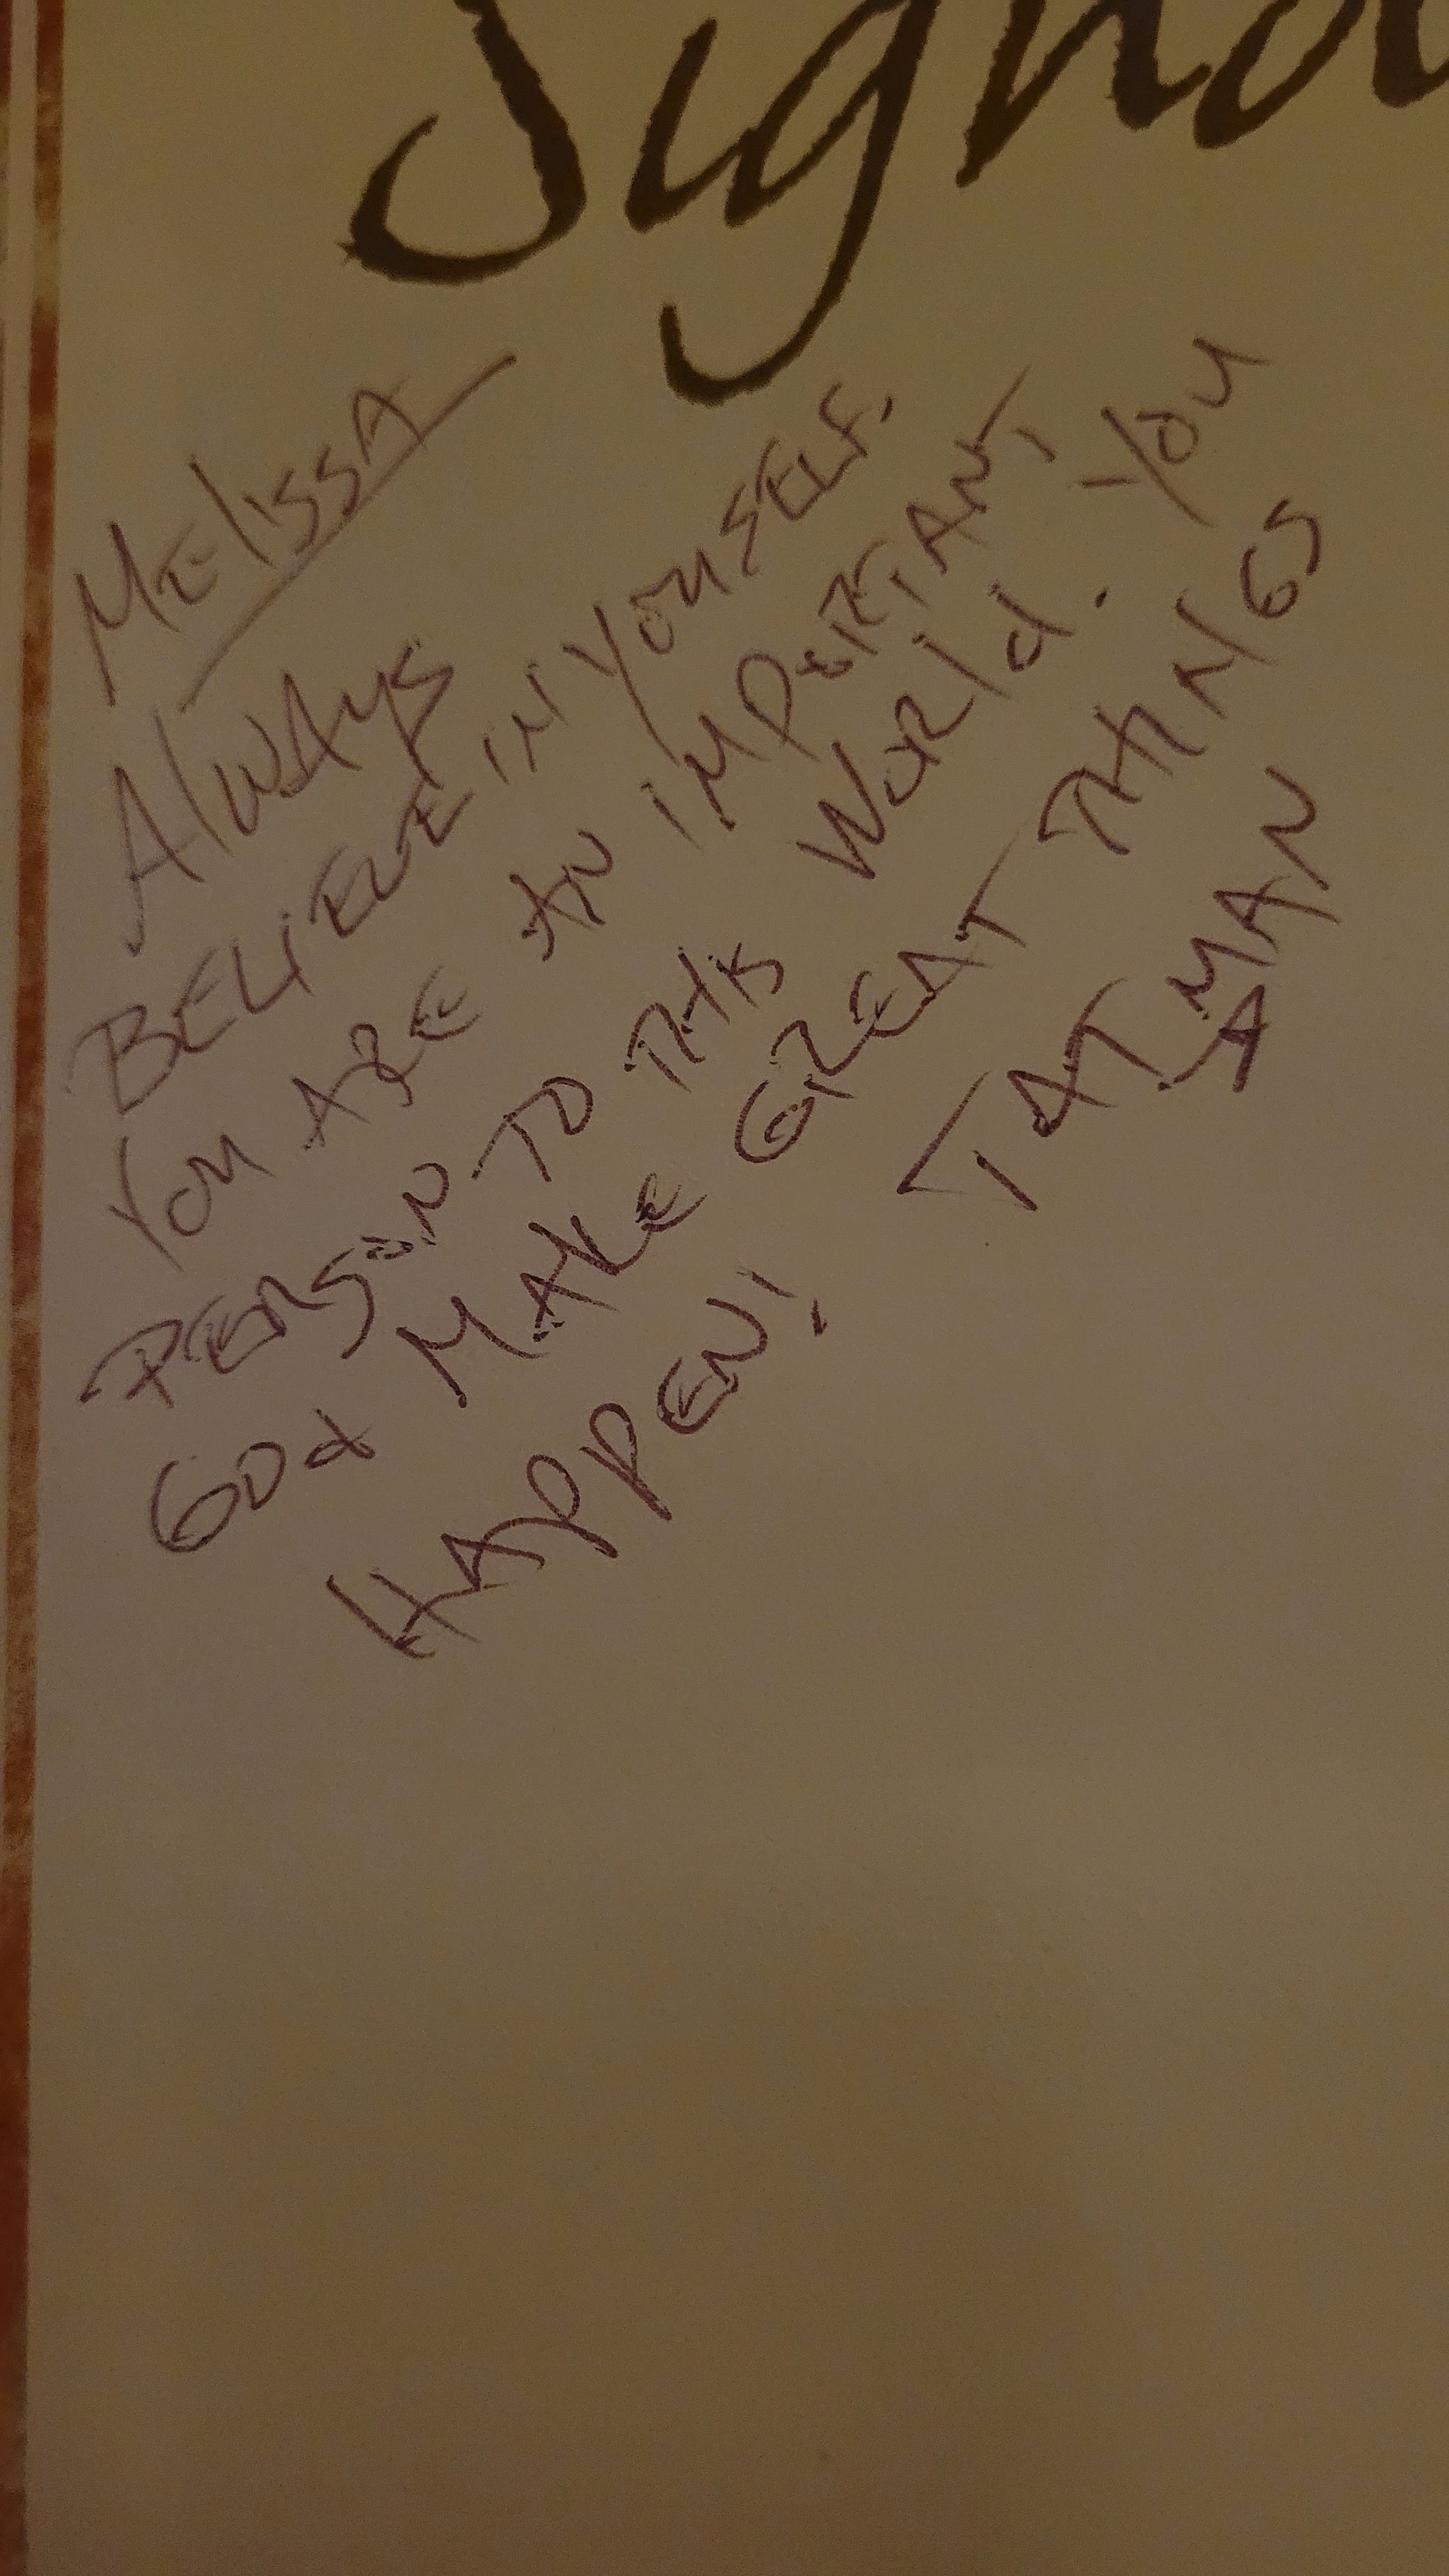 Signa
MElissA
AlwAys
BELIEVE iN YouSELF.
You ARE AN iMPORTANT
PERSON TO THis World. You
God MAKE GREAT THiNGS
HAPPEN!
TATMAN